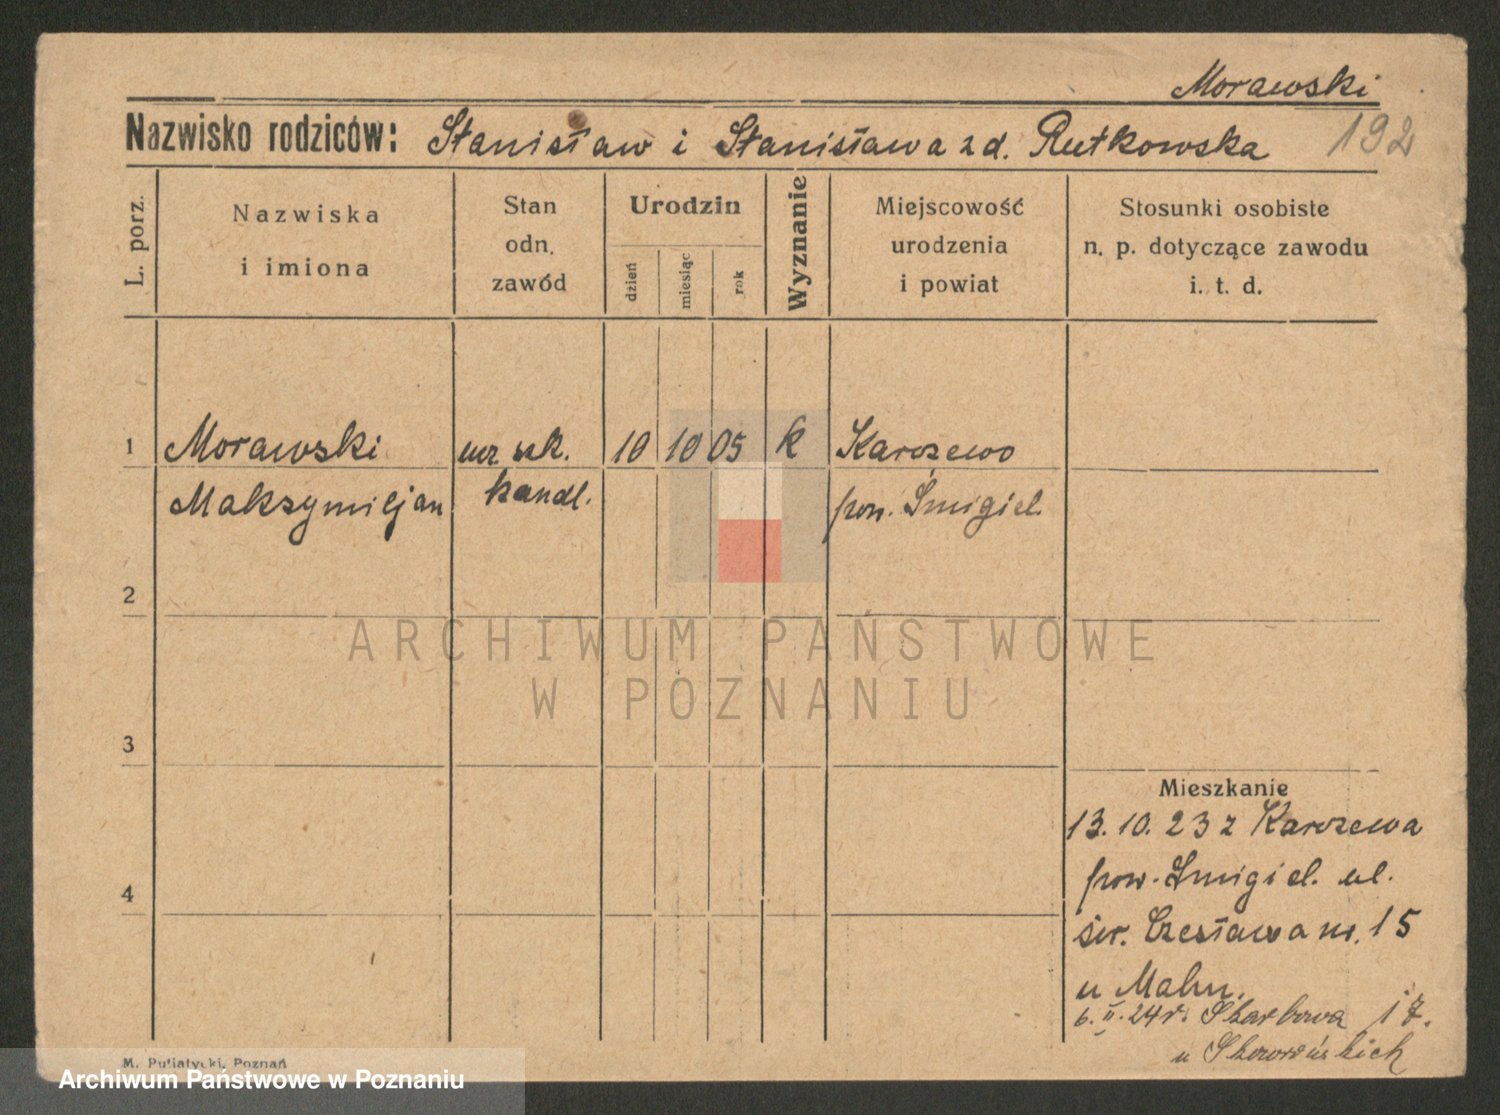 Morawski
Nazwisko rodziców: Stanisław i Stanisława z d. Rutkowska 192
L. porz.
Nazwiska
i imiona
Stan
odn.
zawód
Urodzin
dzień
miesiąc
rok
Wyznanie
Miejscowość
urodzenia
i powiat
Stosunki osobiste
n. p. dotyczące zawodu
i. t. d.
1 Morawski ucz. szk. 10 10 05 k Karczewo
Maksymiljan handl. pow. Śmigiel.
2
ARCHIWUM PAŃSTWOWE
W POZNANIU
3
Mieszkanie
13. 10. 23 z Karczewa
4 pow. Śmigiel. ul.
św. Czesława nr. 15
u
6. II. 24 r. Skarbowa 17.
u
M. Putiatycki, Poznań
Archiwum Państwowe w Poznaniu